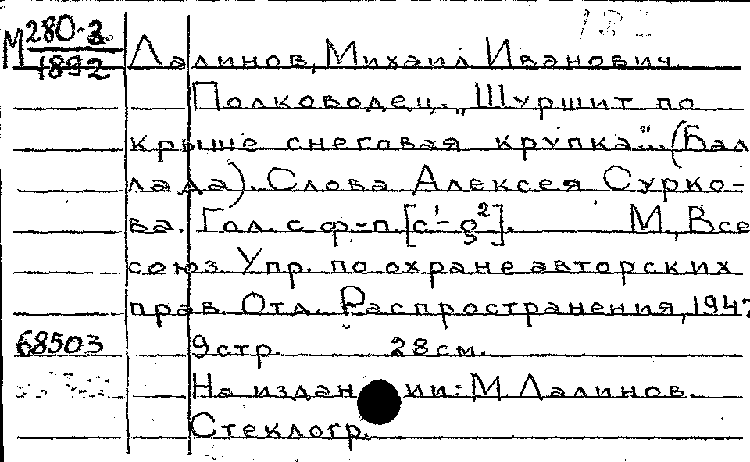 М 280-3
1892 Лалинов, Михаил Иванович.
Полководец. „Шуршит по
крыше снеговая крупка"... (Бал
лада). Слова Алексея Сурко-
ва. Гол. с ф-п. [c¹-g²]. М., Все
союз. Упр. по охране авторских
прав. Отд. Распространения, 1947
68503 9 стр. 28 см.
На издании: М Лалинов.
Стеклогр.